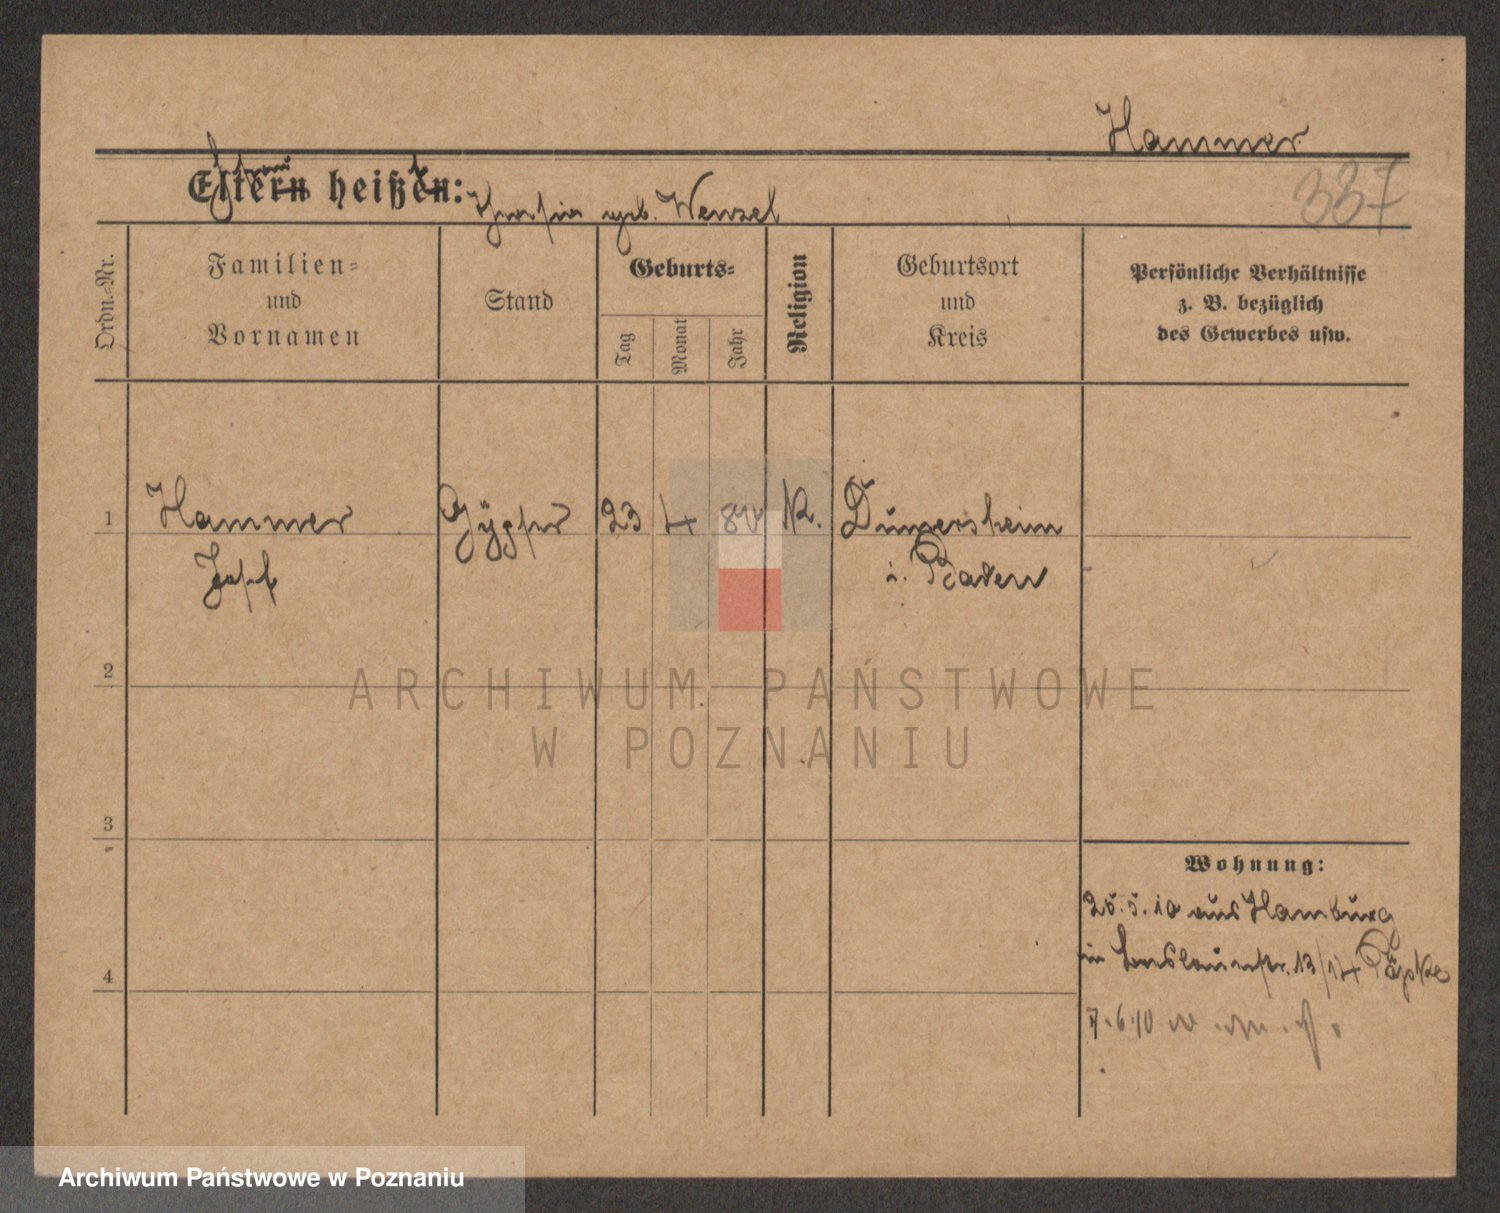 Hammer
337
Eltern heißen: geb. Wenzel
Ordn.-Nr.
Familien-
und
Vornamen
Stand
Geburts-
Tag
Monat
Jahr
Religion
Geburtsort
und
Kreis
Persönliche Verhältnisse
z. B. bezüglich
des Gewerbes usw.
1
Hammer
Josef
23 4 K.
Durmersheim
i. Baden
2
ARCHIWUM PAŃSTWOWE
W POZNANIU
3
4
Wohnung:
25.5.10 aus Hamburg
in 13/14
7.6.10
Archiwum Państwowe w Poznaniu